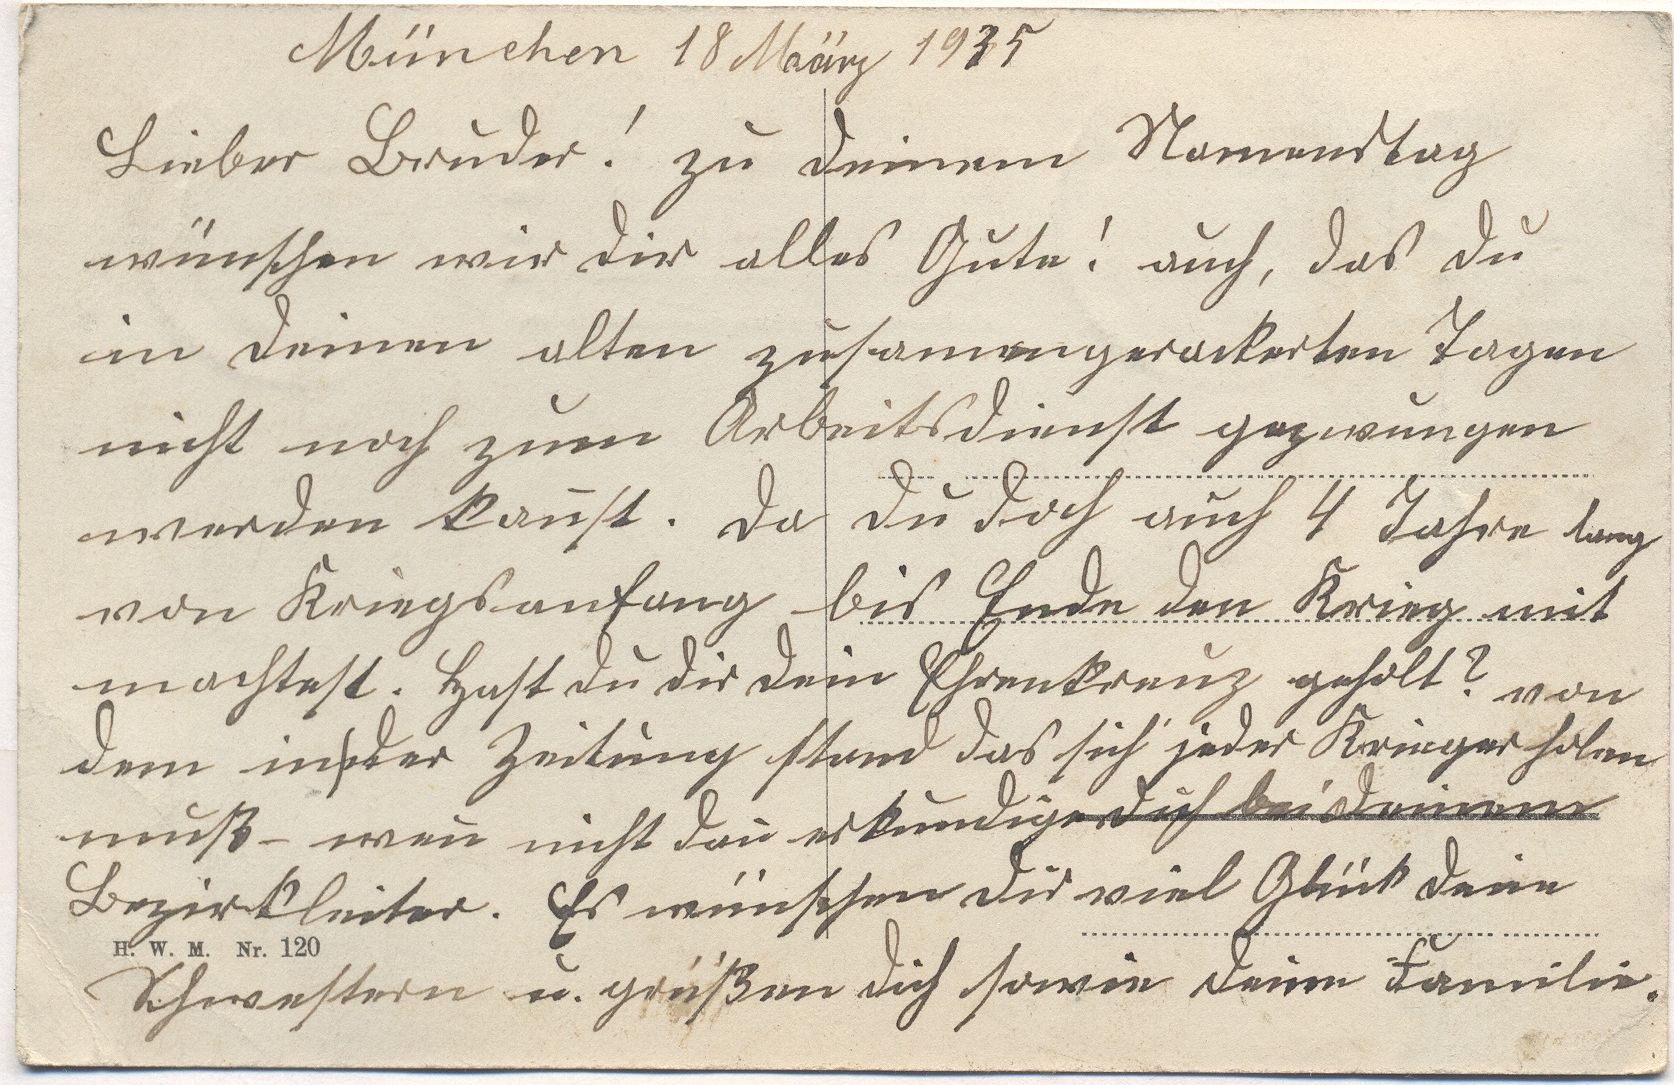 München 18 März 1935
Lieber Bruder! zu deinem Namenstag
wünschen wir dir alles Gute! auch, das du
in deinen alten zusamengerackerten Tagen
nicht noch zum Arbeitsdienst gezwungen
werden kan̄st. Da du doch auch 4 Jahre lang
von Kriegsanfang bis Ende den Krieg mit
machtest. Hast du dir dein Ehrenkreuz geholt? von
dem in der Zeitung stand das sich jeder Krieger holen
muß – wen̄ nicht dan̄ erkundige dich bei deinem
Bezirkleiter. Es wünschen dir viel Glück deine
H. W. M. Nr. 120
Schwestern u. grüßen dich sowie deine Familie.